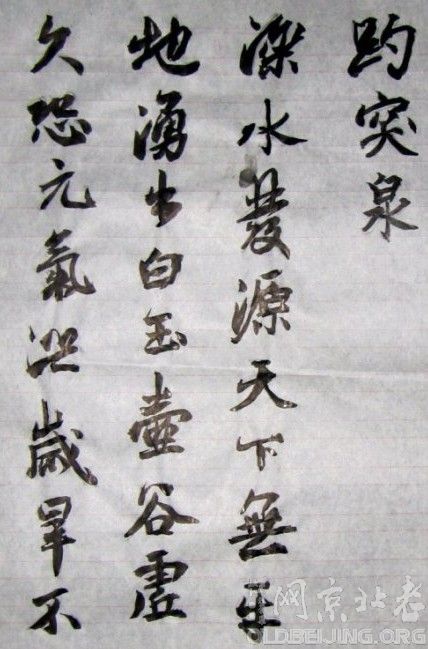 趵突泉
濼水發源天下無平
地湧出白玉壺谷虛
久恐元氣泄歲旱不
网京北老
OLDBEIJING.ORG